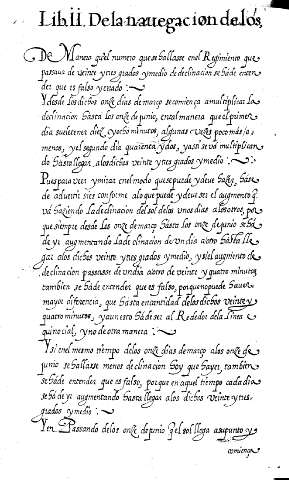 Lib. II. De la navegacion de los
De Manera quel numero que se hallasse en el Regimiento que
passase de veinte y tres grados y medio de declinacion se hade enten
der que es falso y errado
Y desde los dichos onze dias de março se comiença a multiplicar la
declinacion hasta los onze de junio, en tal manera que el primer
dia suele tener diez y ocho minutos, algunas vezes poco mas /o
menos, y el segundo dia quarenta y dos, y assi se va multiplican
do hasta llegar, a los dichos veinte y tres grados y medio
Pues para ver y mirar en el modo que se puede y deve hazer, hase
de advertir si es conforme a lo que puede y deve ser el augmento q̃
va haziendo la declinacion del sol de los unos dias a los otros, por
que siempre desde los onze de março hasta los onze de junio se ha
de yr augmentando la declinacion de un dia a otro hasta lle
gar a los dichos veinte y tres grados y medio, y si el augmento de
declinacion passasse de un dia a otro de veinte y quatro minutos
tambien se hade entender que es falso, porque no puede haver
mayor diferencia, que hasta en cantidad de los dichos veinte y
quatro minutos, y aun esto hade ser al Rededor de la linea
quinocial, y no de otra manera
Y si en el mesmo tiempo de los onze dias de março a los onze de
junio se hallasse menos declinacion hoy que hayer, tambien
se hade entender que es falso, porque en aquel tiempo cada dia
se ha de yr augmentando hasta llegar a los dichos veinte y tres
grados y medio
Y en Passando de los onze de junio quel sol llega a su punto y
comiença